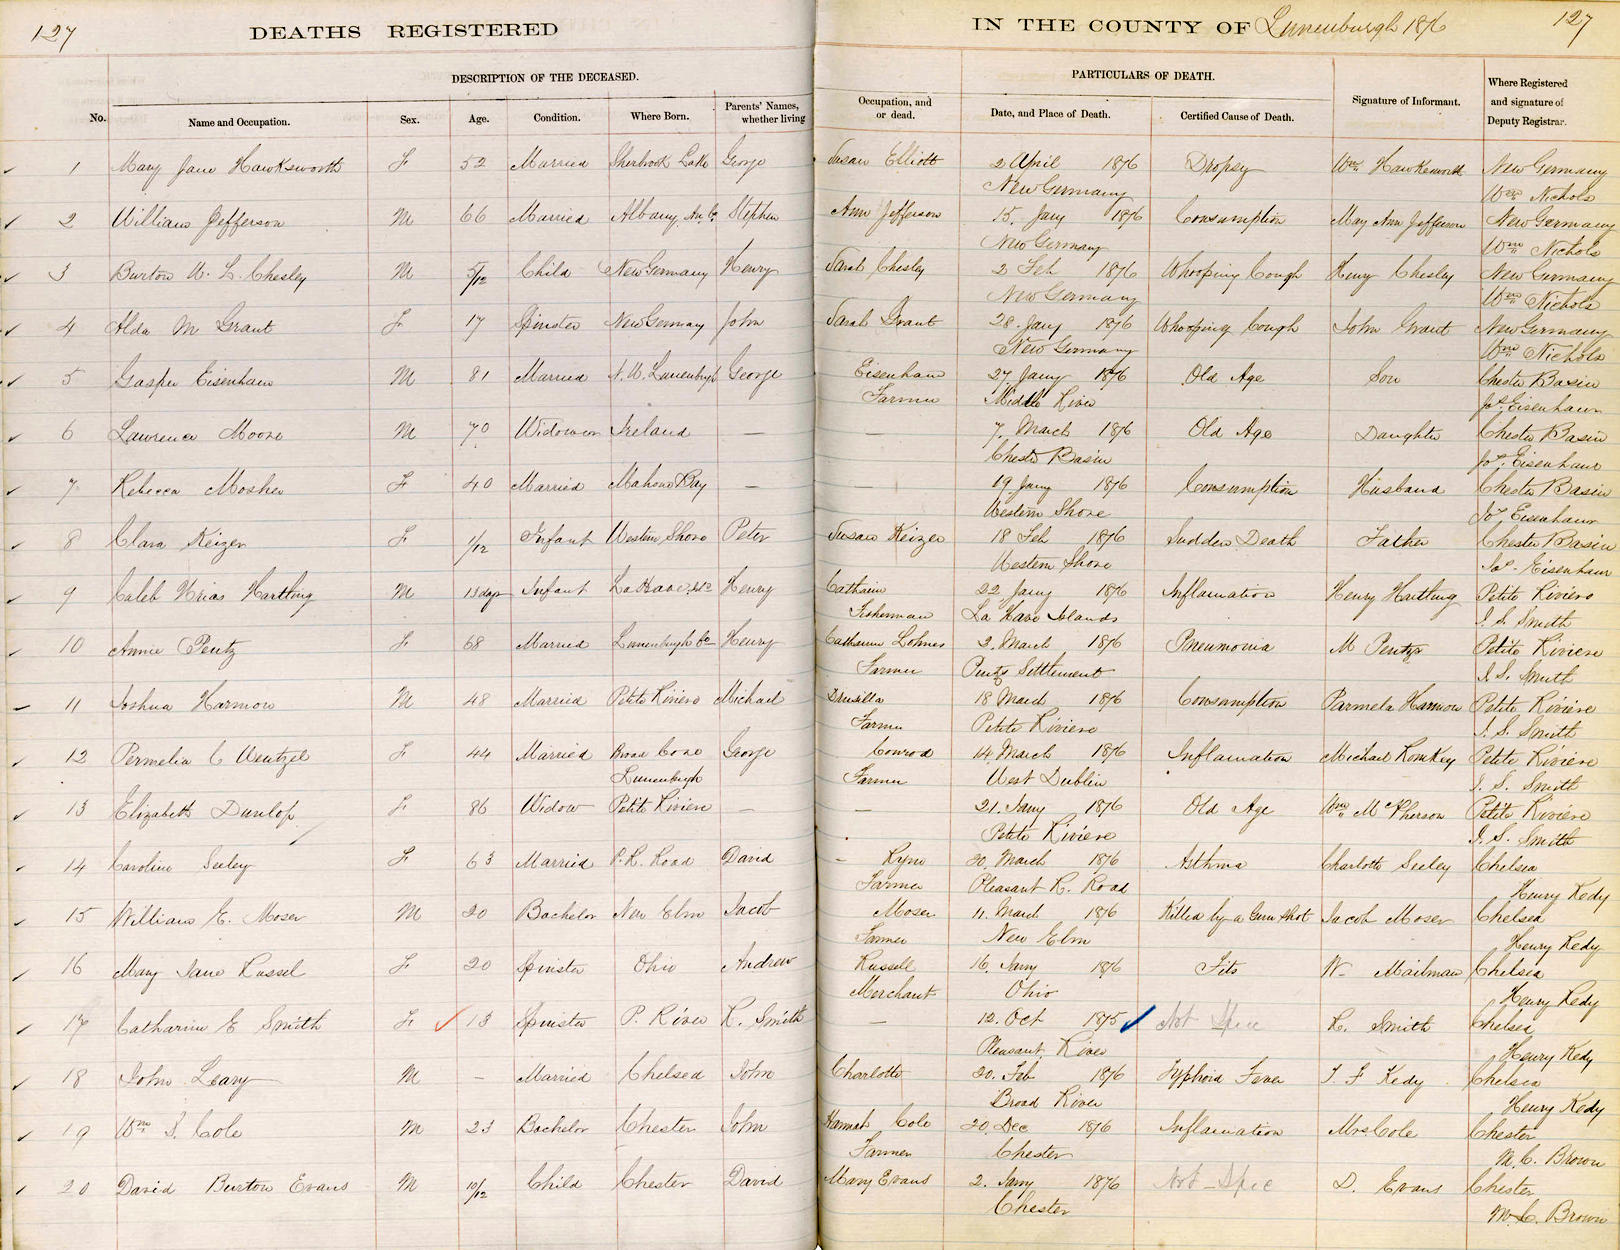 127 DEATHS REGISTERED IN THE COUNTY OF Lunenburgh 1876 127
DESCRIPTION OF THE DECEASED. PARTICULARS OF DEATH.
No. Name and Occupation. Sex. Age. Condition. Where Born. Parents' Names, whether living Occupation, and or dead. Date, and Place of Death. Certified Cause of Death. Signature of Informant. Where Registered and signature of Deputy Registrar.
1 Mary Jane Hawksworth F 52 Married Sherbrook Lake George Susan Elliott 2 April 1876 Dropsy Wm Hawkesworth New Germany
New Germany Wm Nichols
2 William Jefferson M 66 Married Albany, An Co Stephen Ann Jefferson 15. Jany 1876 Consumption Mary Ann Jefferson New Germany
New Germany Wm Nichols
3 Burton W. L. Chesley M 5/12 Child New Germany Henry Sarah Chesley 2 Feb 1876 Whooping Cough Henry Chesley New Germany
New Germany Wm Nichols
4 Alda M Grant F 17 Spinster New Germany John Sarah Grant 28. Jany 1876 Whooping Cough John Grant New Germany
New Germany Wm Nichols
5 Gasper Eisenhaur M 81 Married N. W. Lunenburgh George Eisenhaur 27. Jany 1876 Old Age Son Chester Basin
Farmer Middle River Jos. Eisenhaur
6 Lawrence Moore M 70 Widower Ireland — — 7. March 1876 Old Age Daughter Chester Basin
Chester Basin Jos. Eisenhaur
7 Rebecca Mosher F 40 Married Mahone Bay — — 19 Jany 1876 Consumption Husband Chester Basin
Western Shore Jos. Eisenhaur
8 Clara Keizer F 1/12 Infant Western Shore Peter Susan Keizer 18 Feb 1876 Sudden Death Father Chester Basin
Western Shore Jos. Eisenhaur
9 Caleb Urias Hartling M 13 days Infant La Have Isls Henry Catharin 22 Jany 1876 Inflamation Henry Hartling Petite Riviere
Fisherman La Have Islands I. S. Smith
10 Annie Pentz F 68 Married Lunenburgh Co Henry Catharine Lohnes 2. March 1876 Pneumonia M Pentz Petite Riviere
Farmer Pentz Settlement I. S. Smith
11 Joshua Harmon M 48 Married Petite Riviere Michael Drusilla 18 March 1876 Consumption Parmela Harmon Petite Riviere
Farmer Petite Riviere I. S. Smith
12 Permelia C Wentzel F 44 Married Broad Cove George Conrod 14. March 1876 Inflamation Michael Romkey Petite Riviere
Lunenburgh Farmer West Dublin I. S. Smith
13 Elizabeth Dunlop F 86 Widow Petite Riviere — — 21. Jany 1876 Old Age Wm McPherson Petite Riviere
Petite Riviere I. S. Smith
14 Caroline Seeley F 63 Married P. R. Road David — Ryno 20. March 1876 Asthma Charlotte Seeley Chelsea
Farmer Pleasant R. Road Henry Kedy
15 William E. Moser M 20 Bachelor New Elm Jacob Moser 11. March 1876 Killed by a Gun Shot Jacob Moser Chelsea
Farmer New Elm Henry Kedy
16 Mary Jane Russel F 20 Spinster Ohio Andrew Russell 16. Jany 1876 Fits W— Mailman Chelsea
Merchant Ohio Henry Kedy
17 Catharine E Smith F 13 Spinster P. River R. Smith — 12. Oct 1875 Not Spec R. Smith Chelsea
Pleasant River Henry Kedy
18 John Leary M — Married Chelsea John Charlotte 20. Feb 1876 Typhoid Fever T. F Kedy Chelsea
Broad River Henry Kedy
19 Wm S. Cole M 23 Bachelor Chester John Hannah Cole 20. Dec 1876 Inflamation Mrs. Cole Chester
Farmer Chester M. C. Brown
20 David Burton Evans M 10/12 Child Chester David Mary Evans 2. Jany 1876 Not Spec D. Evans Chester
Chester M. C. Brown